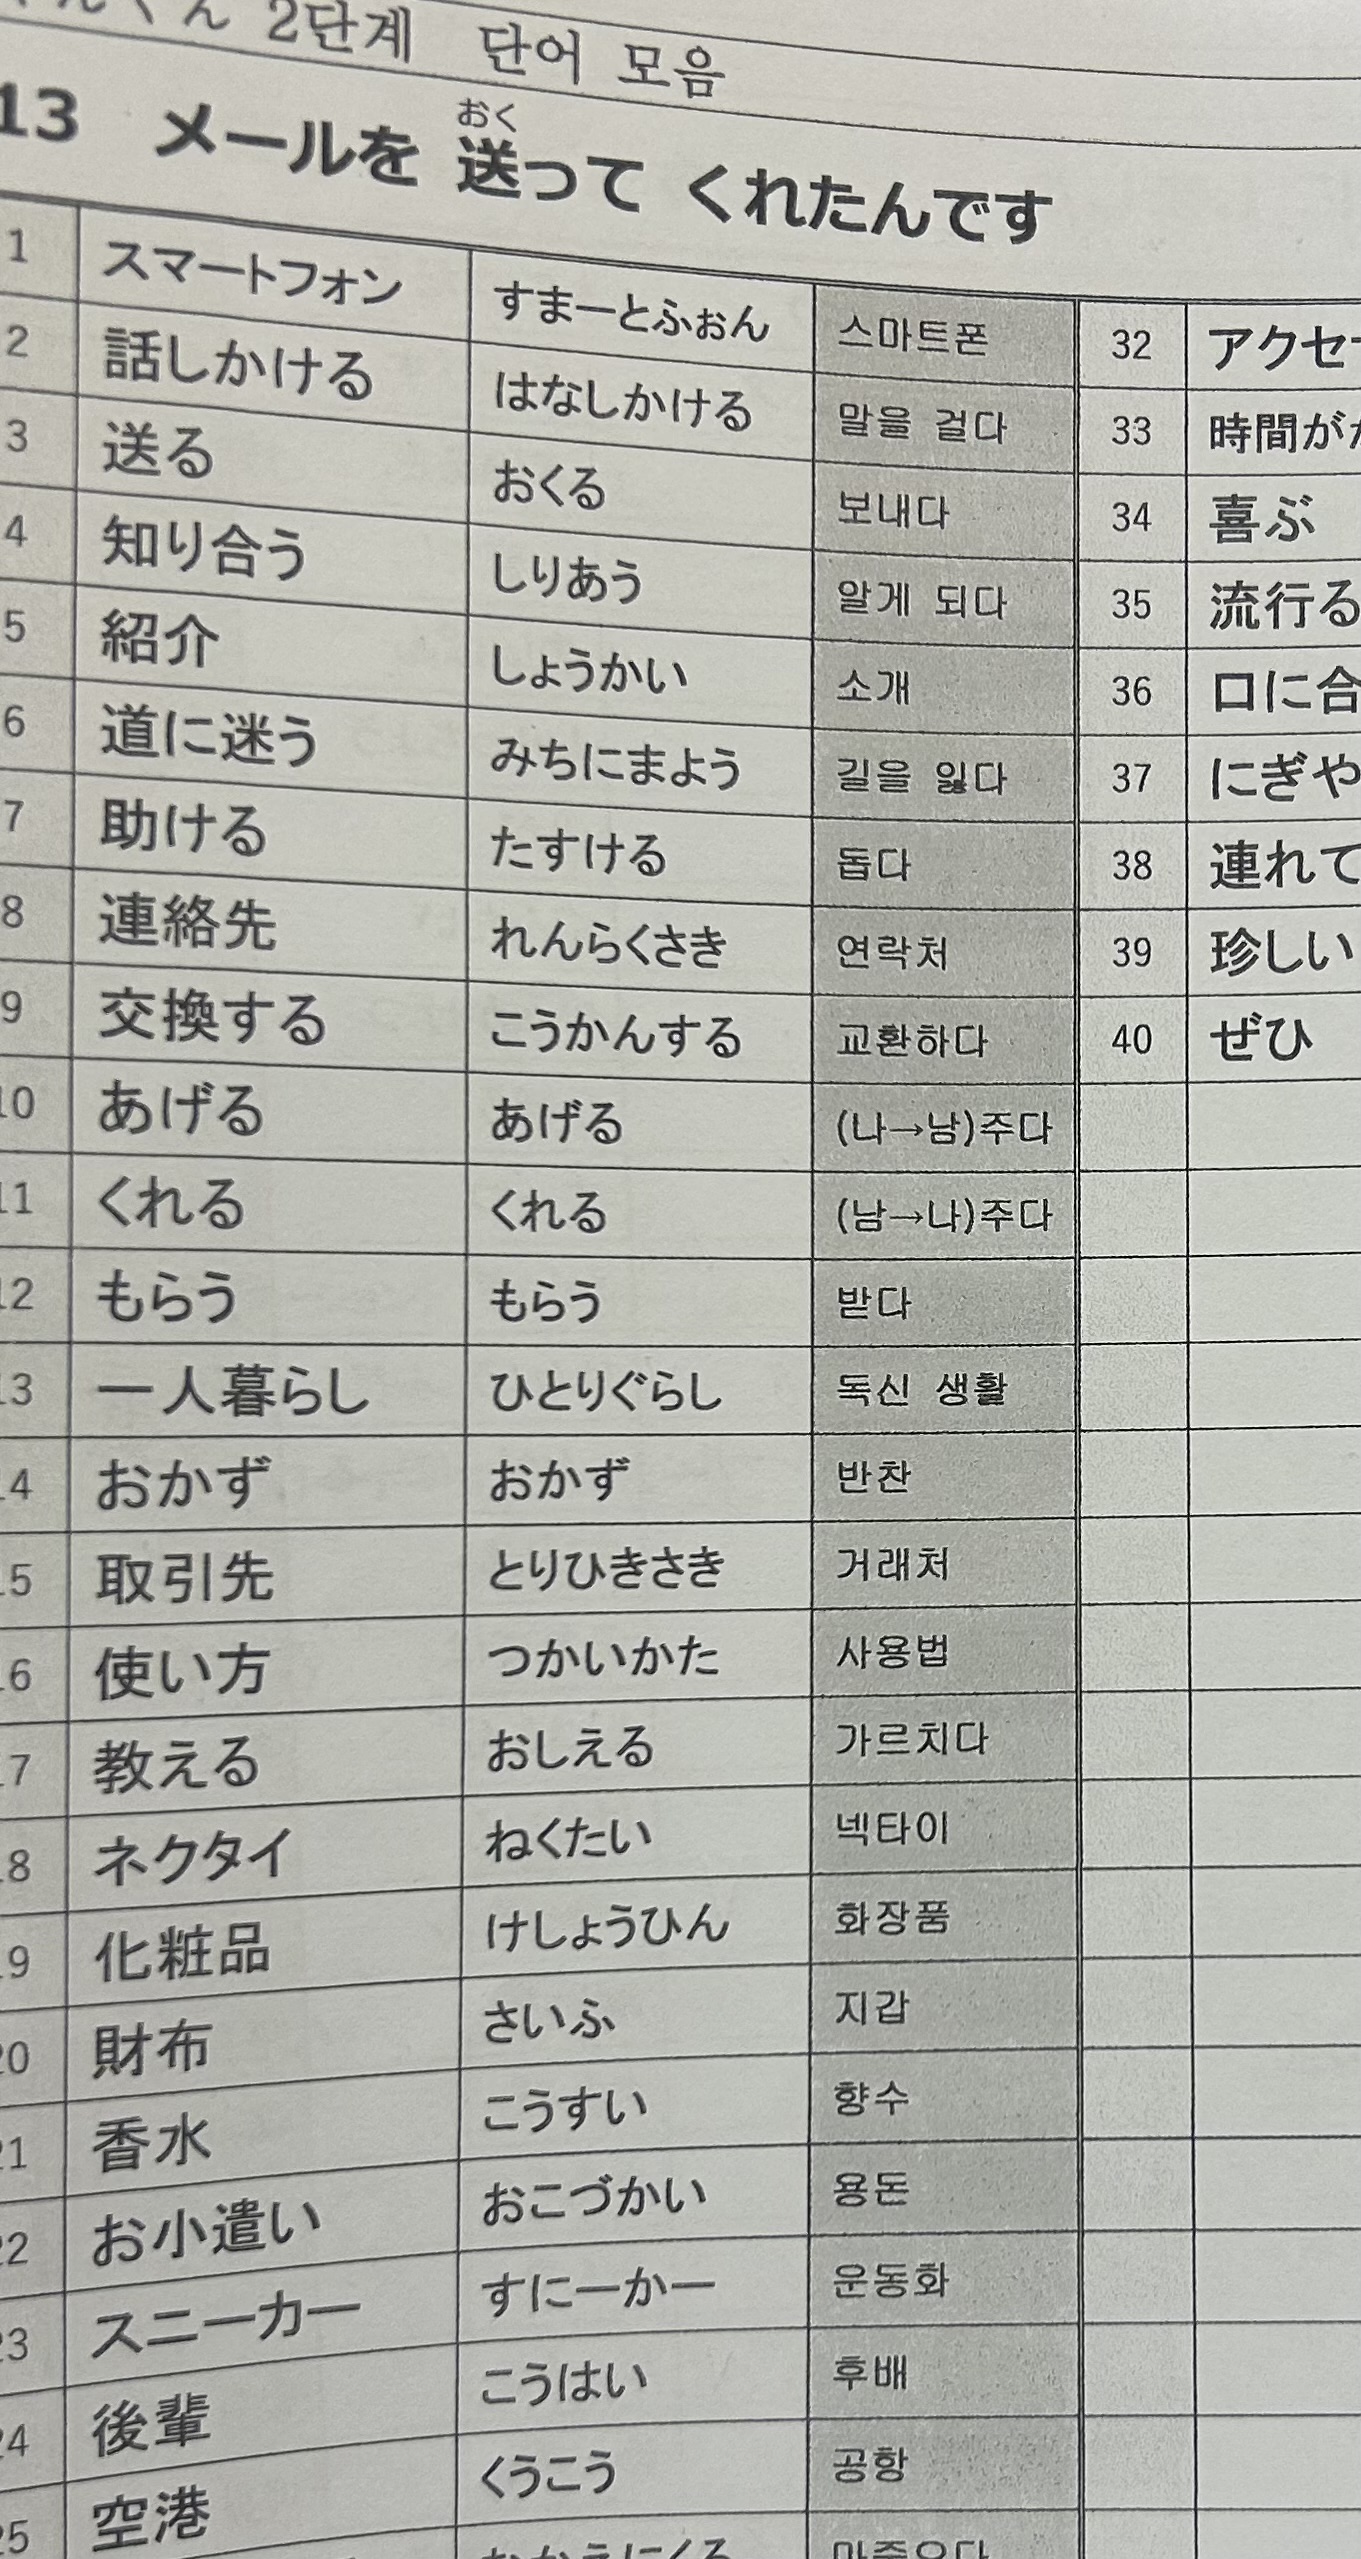 2단계 단어 모음
13 メールを 送って くれたんです
おく
1 スマートフォン すまーとふぉん 스마트폰
2 話しかける はなしかける 말을 걸다
3 送る おくる 보내다
4 知り合う しりあう 알게 되다
5 紹介 しょうかい 소개
6 道に迷う みちにまよう 길을 잃다
7 助ける たすける 돕다
8 連絡先 れんらくさき 연락처
9 交換する こうかんする 교환하다
10 あげる あげる (나→남)주다
11 くれる くれる (남→나)주다
12 もらう もらう 받다
13 一人暮らし ひとりぐらし 독신 생활
14 おかず おかず 반찬
15 取引先 とりひきさき 거래처
16 使い方 つかいかた 사용법
17 教える おしえる 가르치다
18 ネクタイ ねくたい 넥타이
19 化粧品 けしょうひん 화장품
20 財布 さいふ 지갑
21 香水 こうすい 향수
22 お小遣い おこづかい 용돈
23 スニーカー すにーかー 운동화
24 後輩 こうはい 후배
25 空港 くうこう 공항
32 アクセ
33 時間が
34 喜ぶ
35 流行る
36 口に合
37 にぎや
38 連れて
39 珍しい
40 ぜひ